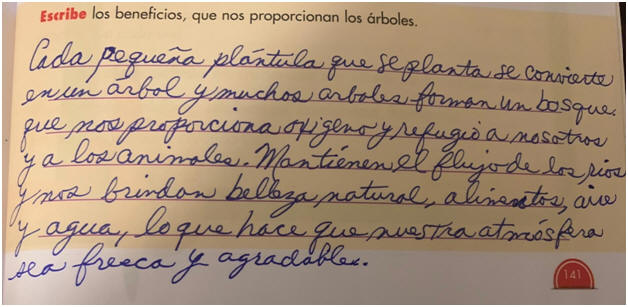 Escribe los beneficios, que nos proporcionan los árboles.
Cada pequeña plántula que se planta se convierte
en un árbol y muchos arboles forman un bosque.
que nos proporciona oxigeno y refugio a nosotros
y a los animales. Mantienen el flujo de los rios
y nos brindan belleza natural, alimentos, aire
y agua, lo que hace que nuestra atmósfera
sea fresca y agradable.
141